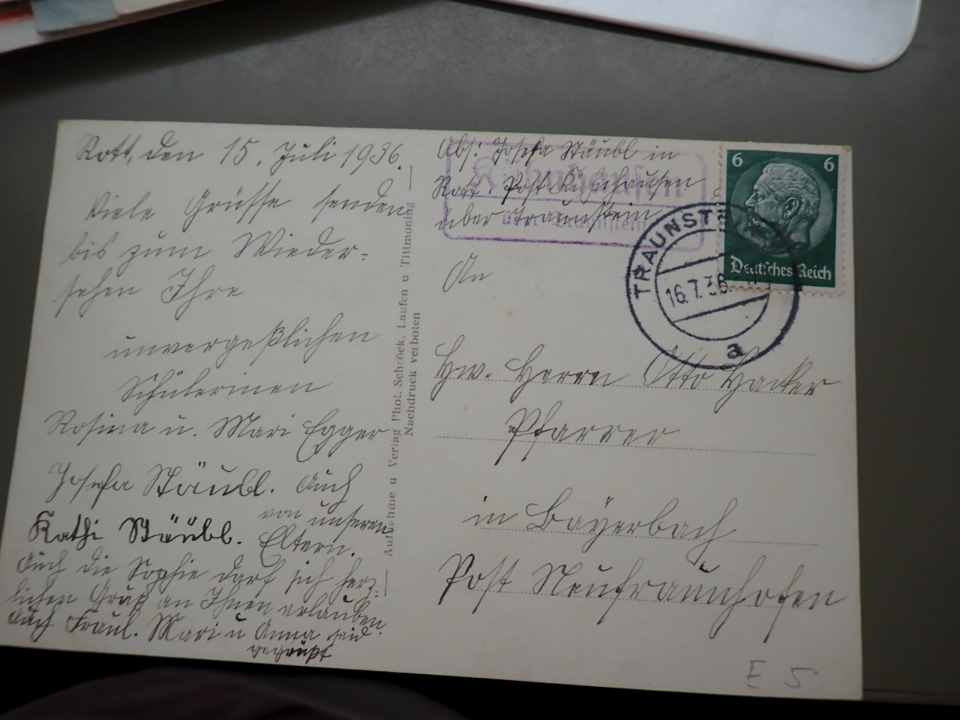 Rott, den 15. Juli 1936.
Viele Grüsse senden
bis zum Wieder-
sehen Ihre
unvergeßlichen
Schülerinen
Rosina u. Mari Egger
Josefa Stäubl. Auch
von unseren
Kathi Stäubl. Eltern.
Auch die Sophie darf sich herz-
lichen Gruß an Ihnen erlauben.
Auch Fräul. Mari u Anna seid
gegrüßt
Aufnahme u Verlag Phot. Schröck, Laufen u Tittmoning
Nachdruck verboten
Abs: Josefa Stäubl in
Rott Post Kühnhausen
über Traunstein
6 6
Deutsches Reich
TRAUNSTE
16.7.36
a
An
Hw. Herrn Otto Hacker
Pfarrer
in Bayerbach
Post Neufraunhofen
E 5